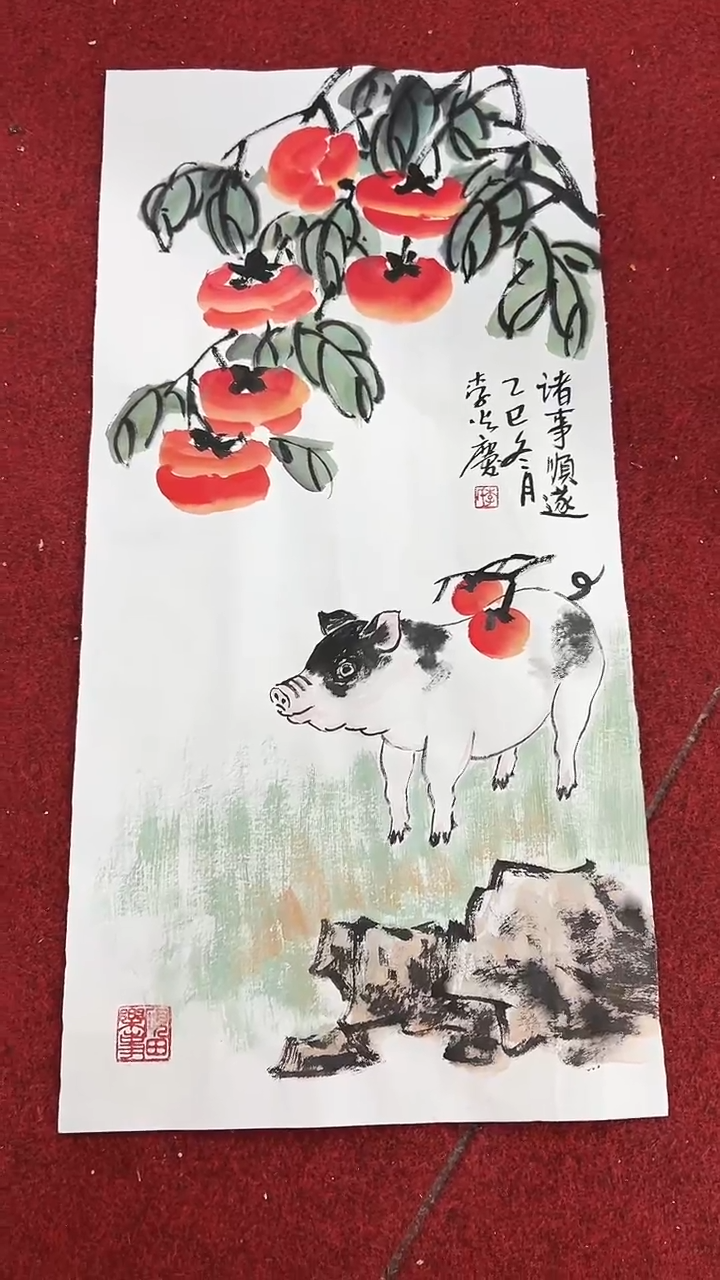 诸事順遂
乙巳冬月
李
慶
李